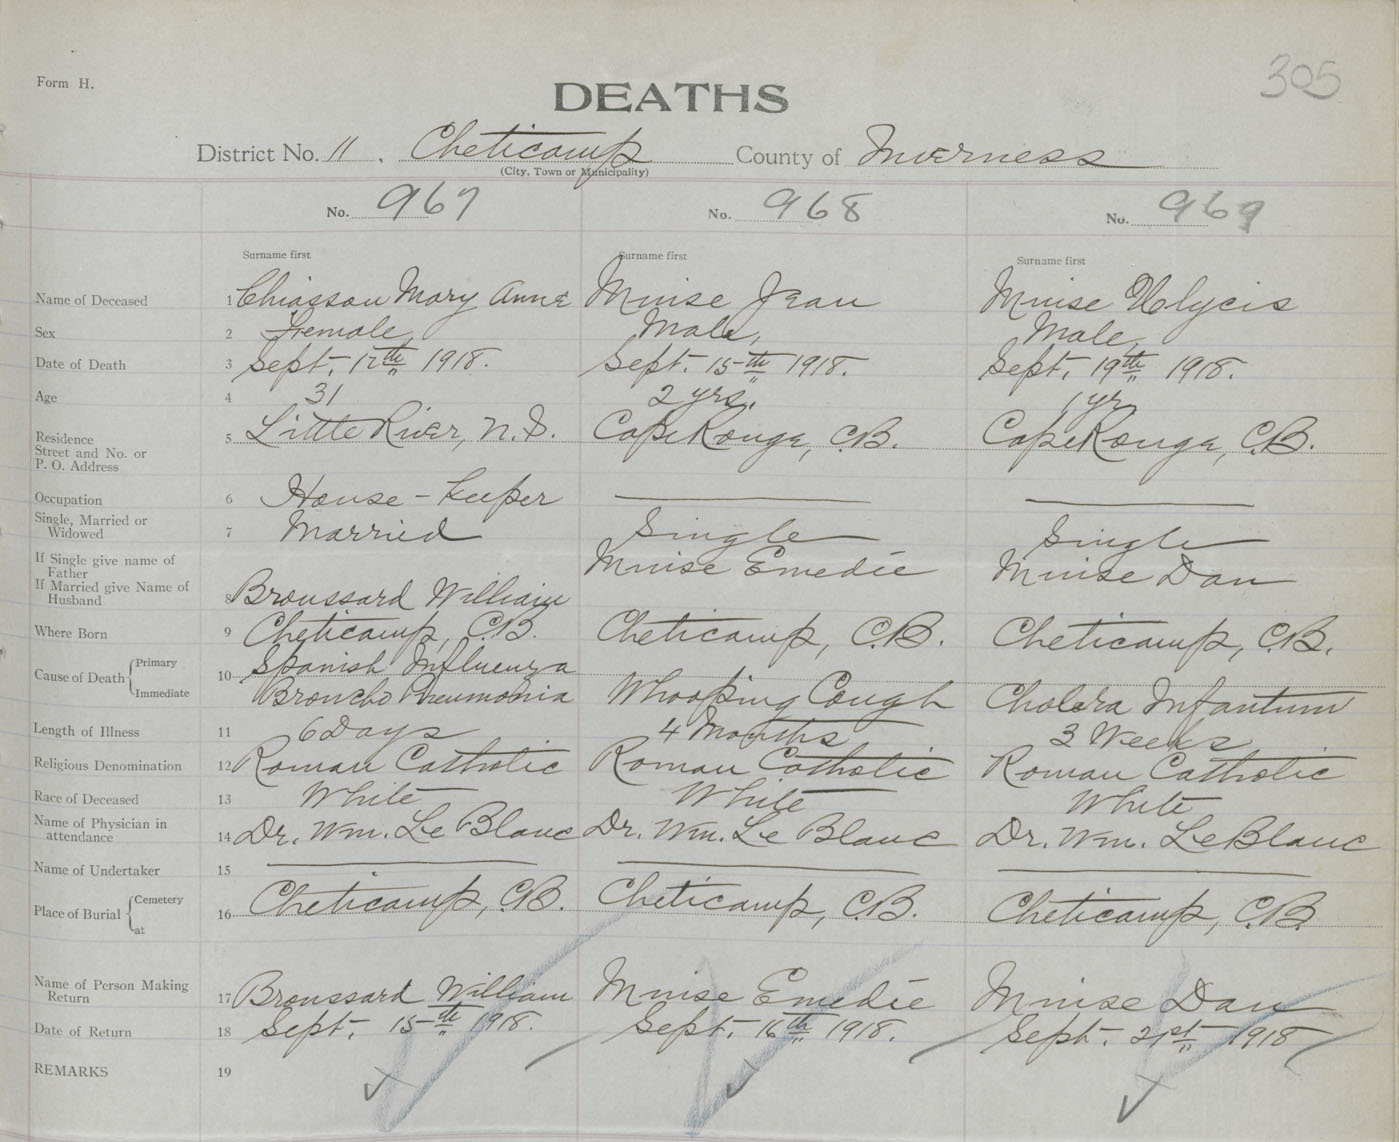 305
Form H.
DEATHS
District No. 11. Cheticamp County of Inverness
(City, Town or Municipality)
No. 967 No. 968 No. 969
Surname first Surname first Surname first
Name of Deceased 1 Chiasson Mary Anne Muise Jean Muise
Sex 2 Female, Male, Male,
Date of Death 3 Sept. 12th 1918. Sept. 15th 1918. Sept. 19th 1918.
Age 4 31 2 yrs. 1 yr
Residence
Street and No. or
P. O. Address 5 Little River, N.S. Cape Rouge, C.B. Cape Rouge, C.B.
Occupation 6 House-keeper
Single, Married or
Widowed 7 Married Single Single
If Single give name of
Father Muise Emedie Muise Dan
If Married give Name of
Husband 8 Broussard William
Where Born 9 Cheticamp, C.B. Cheticamp, C.B. Cheticamp, C.B.
Cause of Death Primary 10 Spanish Influenza
Immediate Broncho Pneumonia Whooping Cough Cholera Infantum
Length of Illness 11 6 Days 4 Months 3 Weeks
Religious Denomination 12 Roman Catholic Roman Catholic Roman Catholic
Race of Deceased 13 White White White
Name of Physician in
attendance 14 Dr. Wm. Le Blanc Dr. Wm. Le Blanc Dr. Wm. LeBlanc
Name of Undertaker 15
Place of Burial Cemetery at 16 Cheticamp, C.B. Cheticamp, C.B. Cheticamp, C.B.
Name of Person Making
Return 17 Broussard William Muise Emedie Muise Dan
Date of Return 18 Sept. 15th 1918. Sept. 16th 1918. Sept. 21st 1918
REMARKS 19